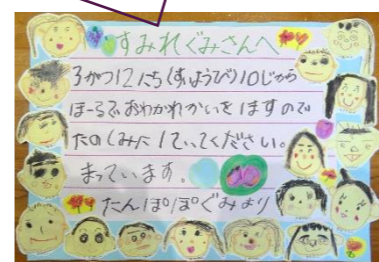 すみれぐみさんへ
3がつ12にち(すいようび)10じから
ほーるでおわかれかいをしますので
たのしみにしていてください。
まっています。
たんぽぽぐみより